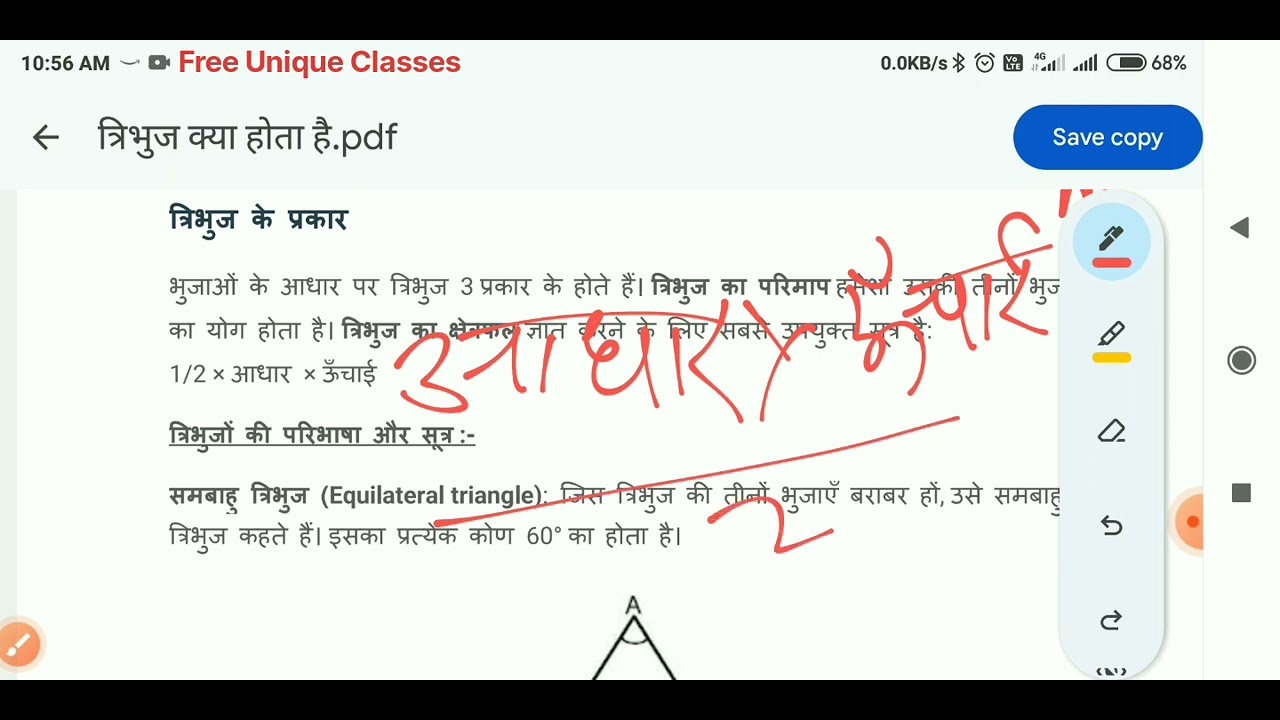 10:56 AM Free Unique Classes 0.0KB/s VO LTE 4G 68%
त्रिभुज क्या होता है.pdf Save copy
त्रिभुज के प्रकार
भुजाओं के आधार पर त्रिभुज 3 प्रकार के होते हैं। त्रिभुज का परिमाप हमेशा उसकी तीनों
का योग होता है। त्रिभुज का क्षेत्रफल ज्ञात करने के लिए सबसे उपयुक्त सूत्र है:
1/2 × आधार × ऊँचाई
आधार × ऊँचाई
2
त्रिभुजों की परिभाषा और सूत्र :-
समबाहु त्रिभुज (Equilateral triangle): जिस त्रिभुज की तीनों भुजाएँ बराबर हों, उसे समबाहु
त्रिभुज कहते हैं। इसका प्रत्येक कोण 60° का होता है।
A